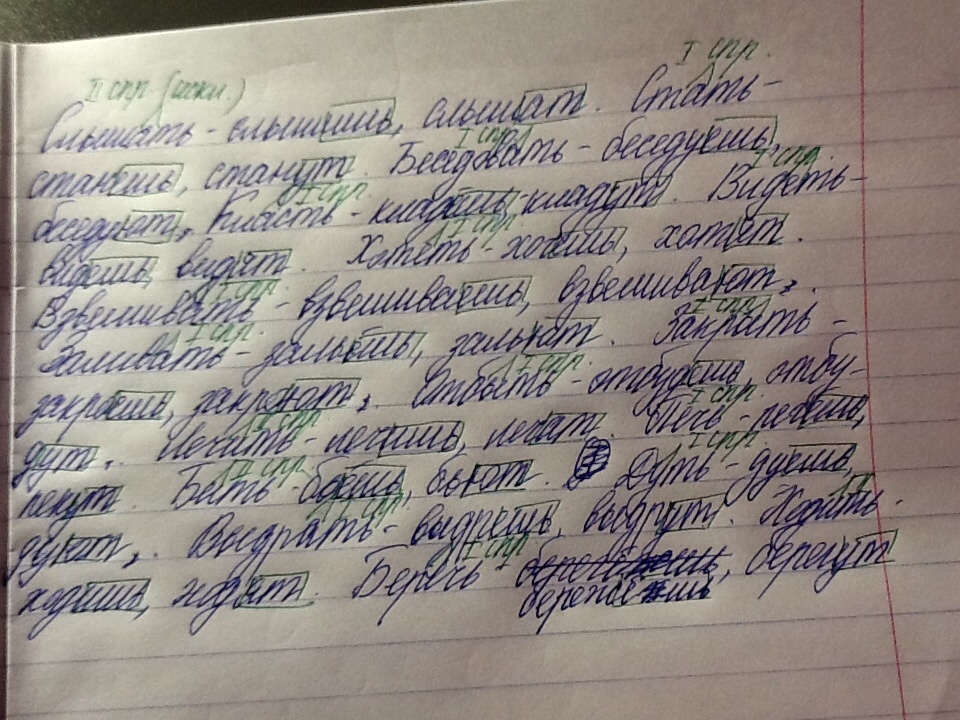 I спр.
II спр. (искл.)
Слышать - слышишь, слышат. Стать -
станешь, станут. Беседовать - беседуешь,
I спр.
беседуют, Класть - кладёшь, кладут. Видеть -
I спр. I спр.
видешь, видят. Хотеть - хочешь, хотят.
Взвешивать - взвешиваешь, взвешивают,
Заливать - зальёшь, зальют. Закрыть -
I спр. I спр.
закроешь, закроют, Отбыть - отбудешь, отбу-
I спр.
дут, Лечить - лечишь, лечат. Печь - печёшь,
I спр.
пекут. Бить - бьёшь, бьют. Дуть - дуешь,
I спр.
дуют, Выдрать - выдрешь, выдрут. Ходить -
ходишь, ходят. Беречь - бережёшь, берегут
I спр.